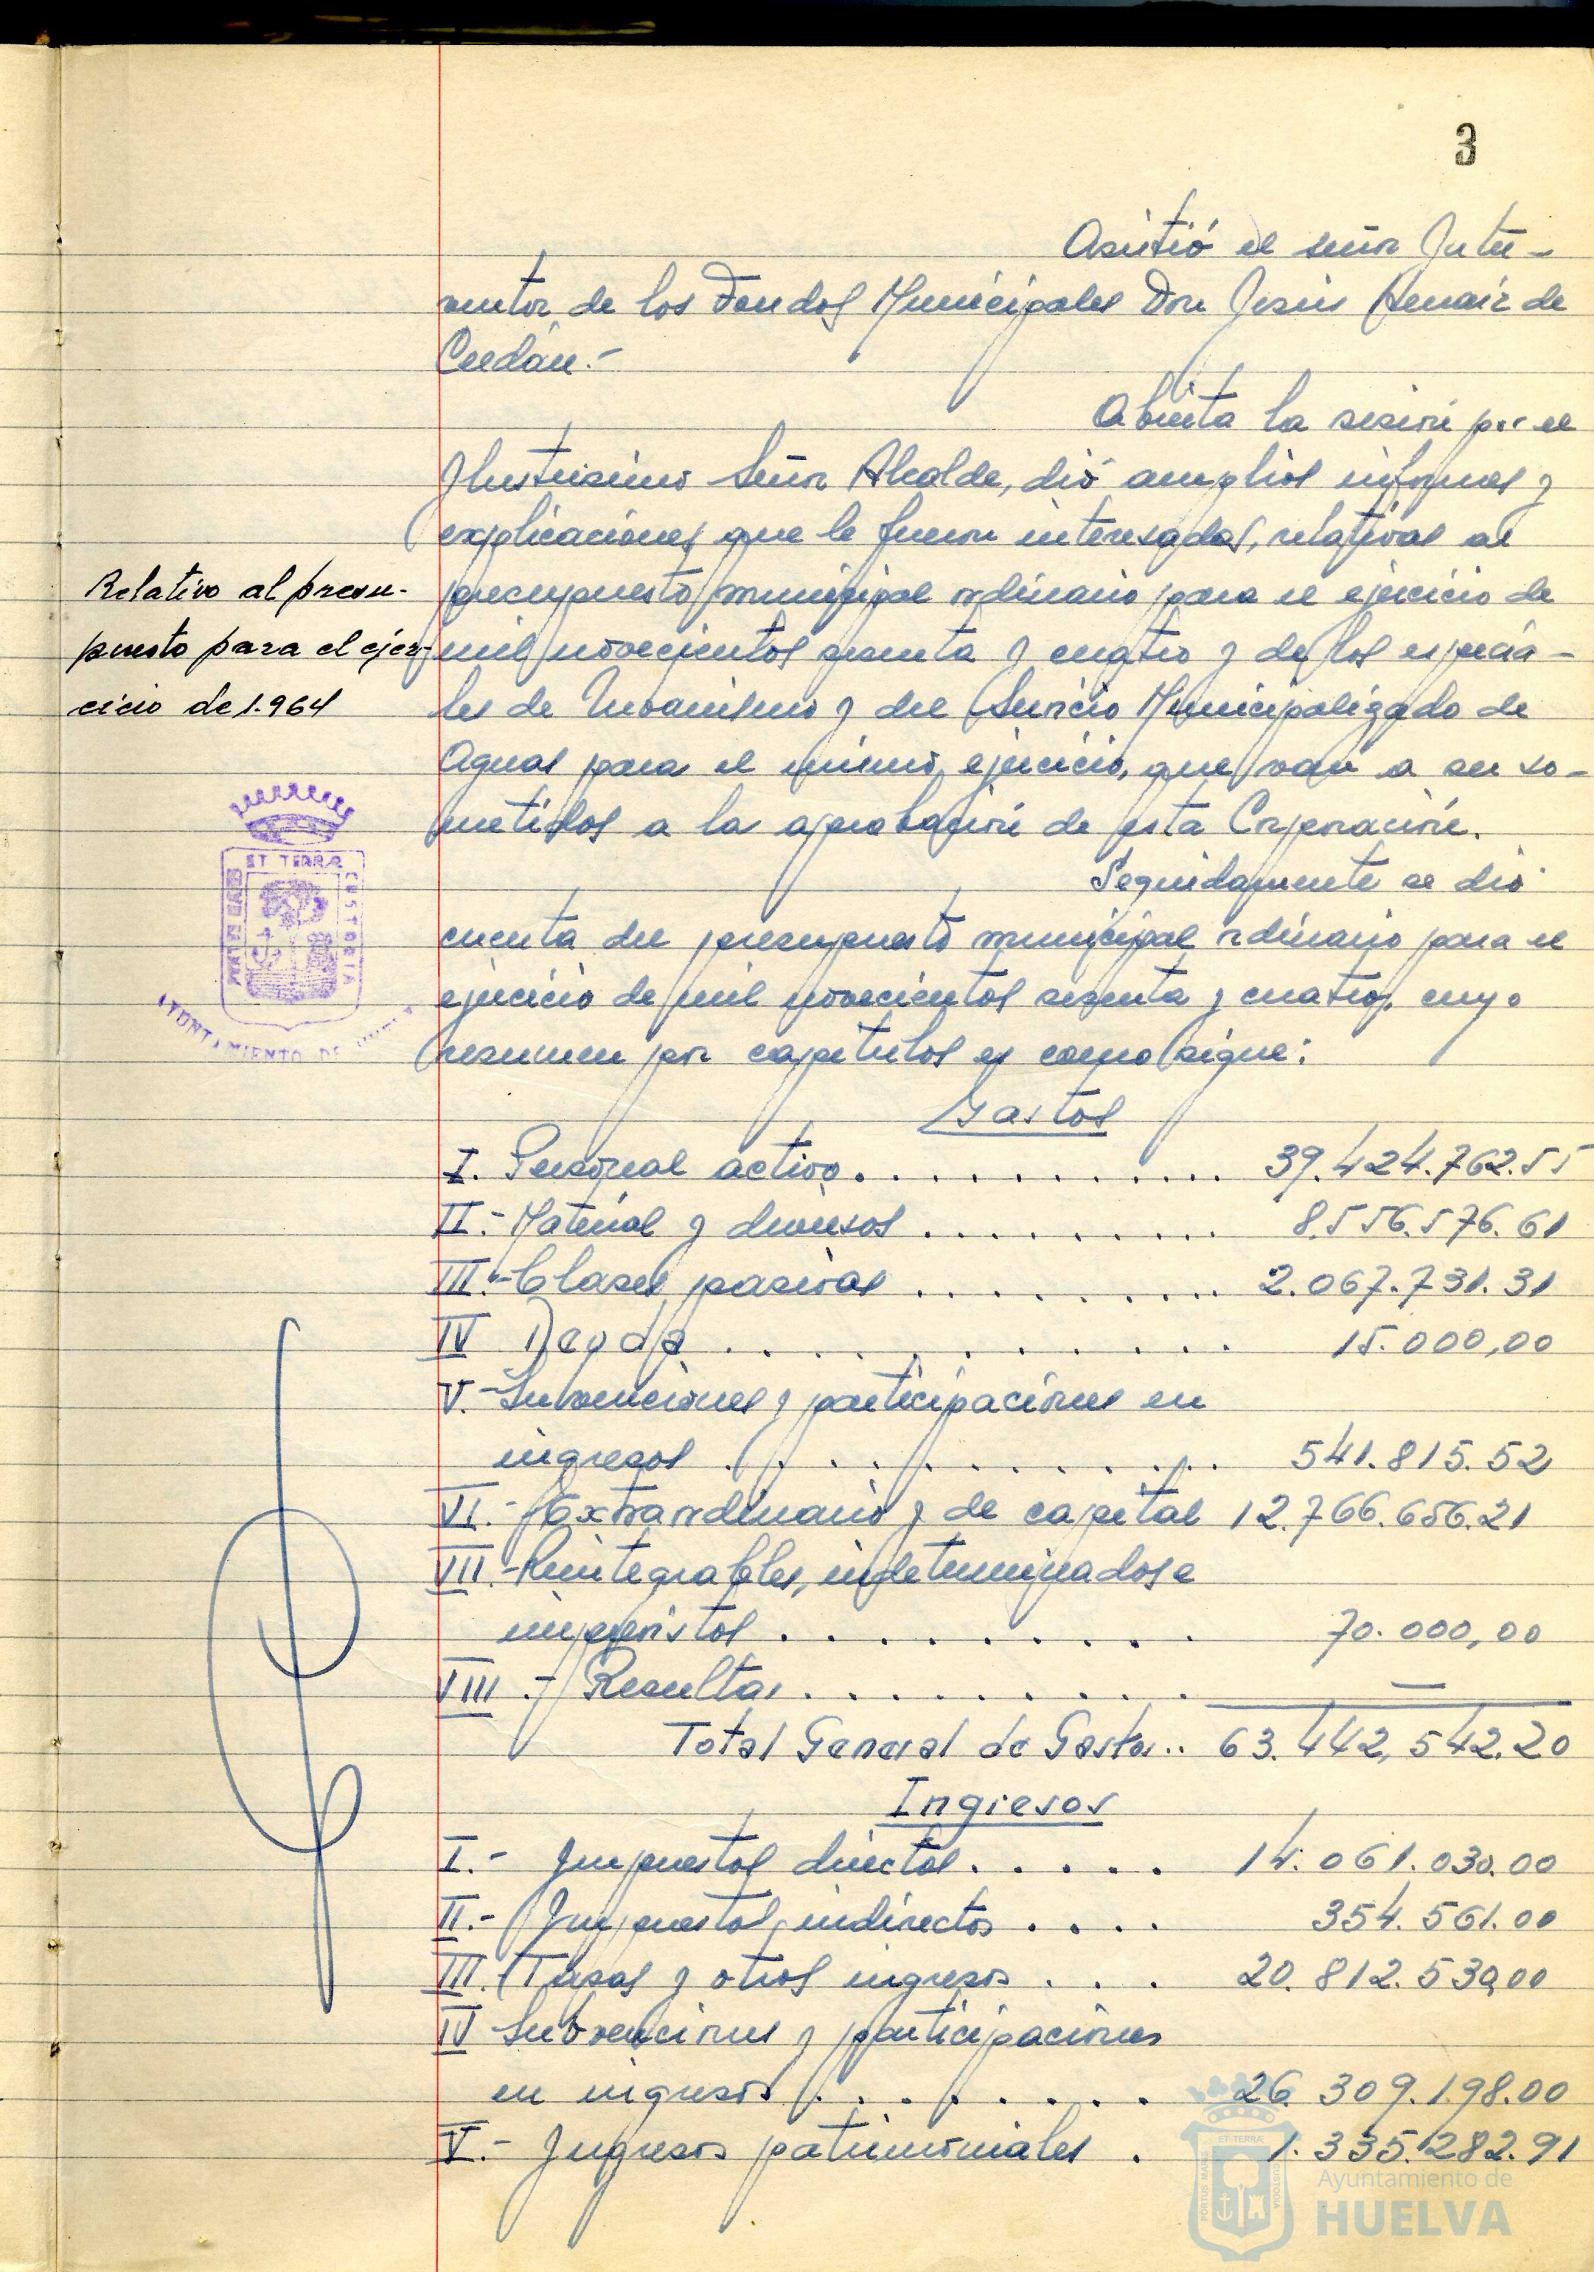 3
Asistió el señor Inter-
ventor de los Fondos Municipales Don Jesús Henaiz de
Cerdán.-
Abierta la sesión por el
Ilustrisimo Señor Alcalde, dió amplios informes y
explicaciones que le fueron interesadas, relativas al
presupuesto municipal ordinario para el ejercicio de
mil novecientos sesenta y cuatro y de los especia-
les de Urbanismo y del Servicio Municipalizado de
Aguas para el mismo ejercicio, que van a ser so-
metidos a la aprobación de esta Corporación.
Relativo al presu-
puesto para el ejer-
cicio de 1.964
ET TERRÆ
CUSTODIA
AYUNTAMIENTO DE HUELVA
Seguidamente se dió
cuenta del presupuesto municipal ordinario para el
ejercicio de mil novecientos sesenta y cuatro, cuyo
resumen por capítulos es como sigue:
Gastos
I. Personal activo . . . . . . . . . . . . 39.424.762.55
II.- Material y diversos . . . . . . . . . . 8.556.576.61
III.- Clases pasivas . . . . . . . . . . 2.067.731.31
IV Deuda . . . . . . . . . . . . 15.000,00
V.- Subvenciones y participaciones en
ingresos . . . . . . . . . . . 541.815.52
VI.- Extraordinario y de capital 12.766.656.21
VII.- Reintegrables, indeterminados e
imprevistos . . . . . . . . . 70.000,00
VIII.- Resultas . . . . . . . . . —
Total General de Gastos.. 63.442,542.20
Ingresos
I.- Impuestos directos . . . . . 14.061.030.00
II.- Impuestos indirectos . . . . 354.561.00
III. Tasas y otros ingresos . . . 20.812.530,00
IV Subvenciones y participaciones
en ingresos . . . . . . . . 26.309.198.00
V.- Ingresos patrimoniales . 1.335.282.91
Ayuntamiento de
HUELVA